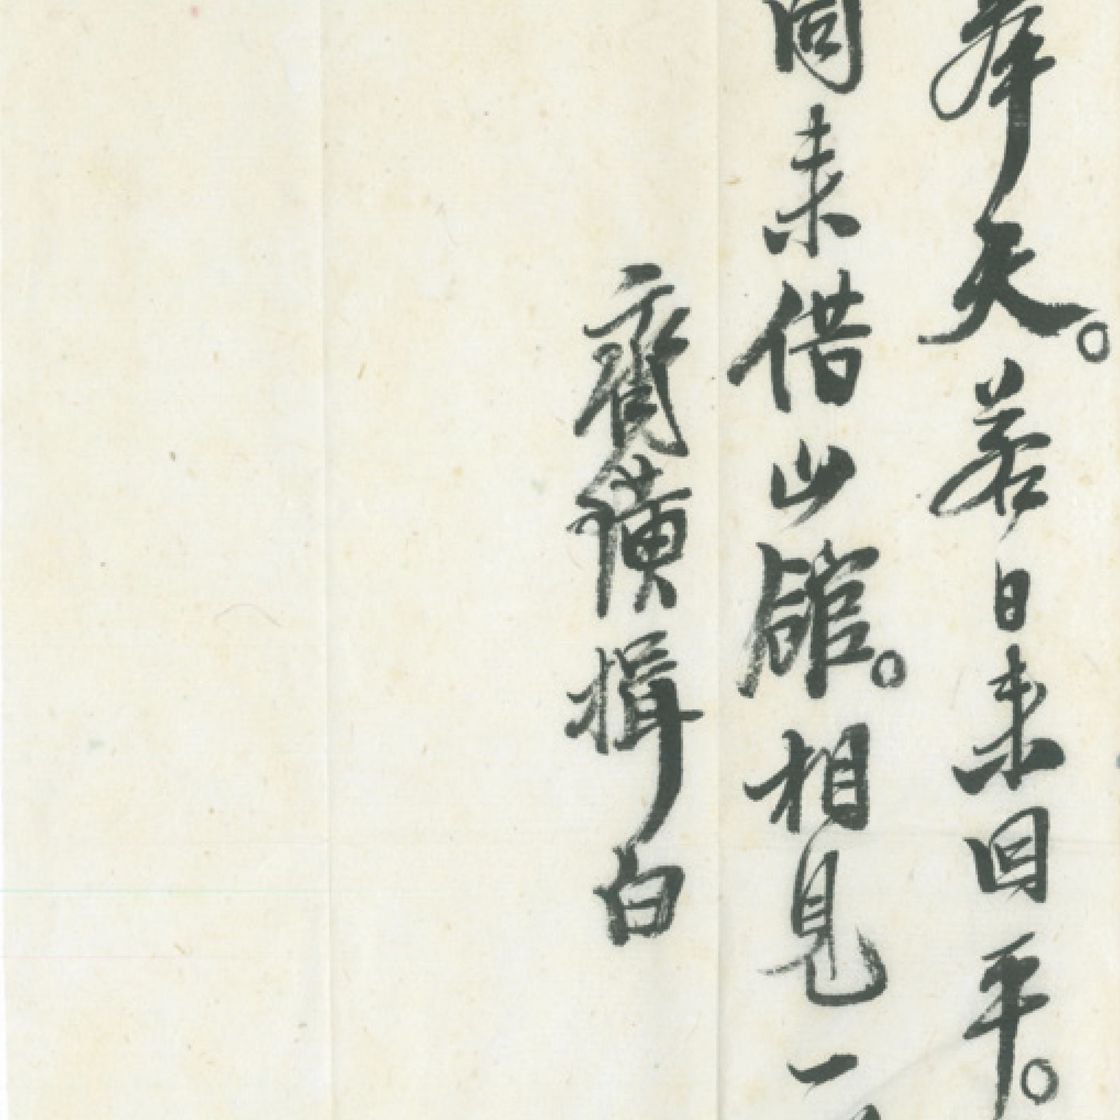 奉天。若日来回平。
同来借山館。相見一
齊璜揖白